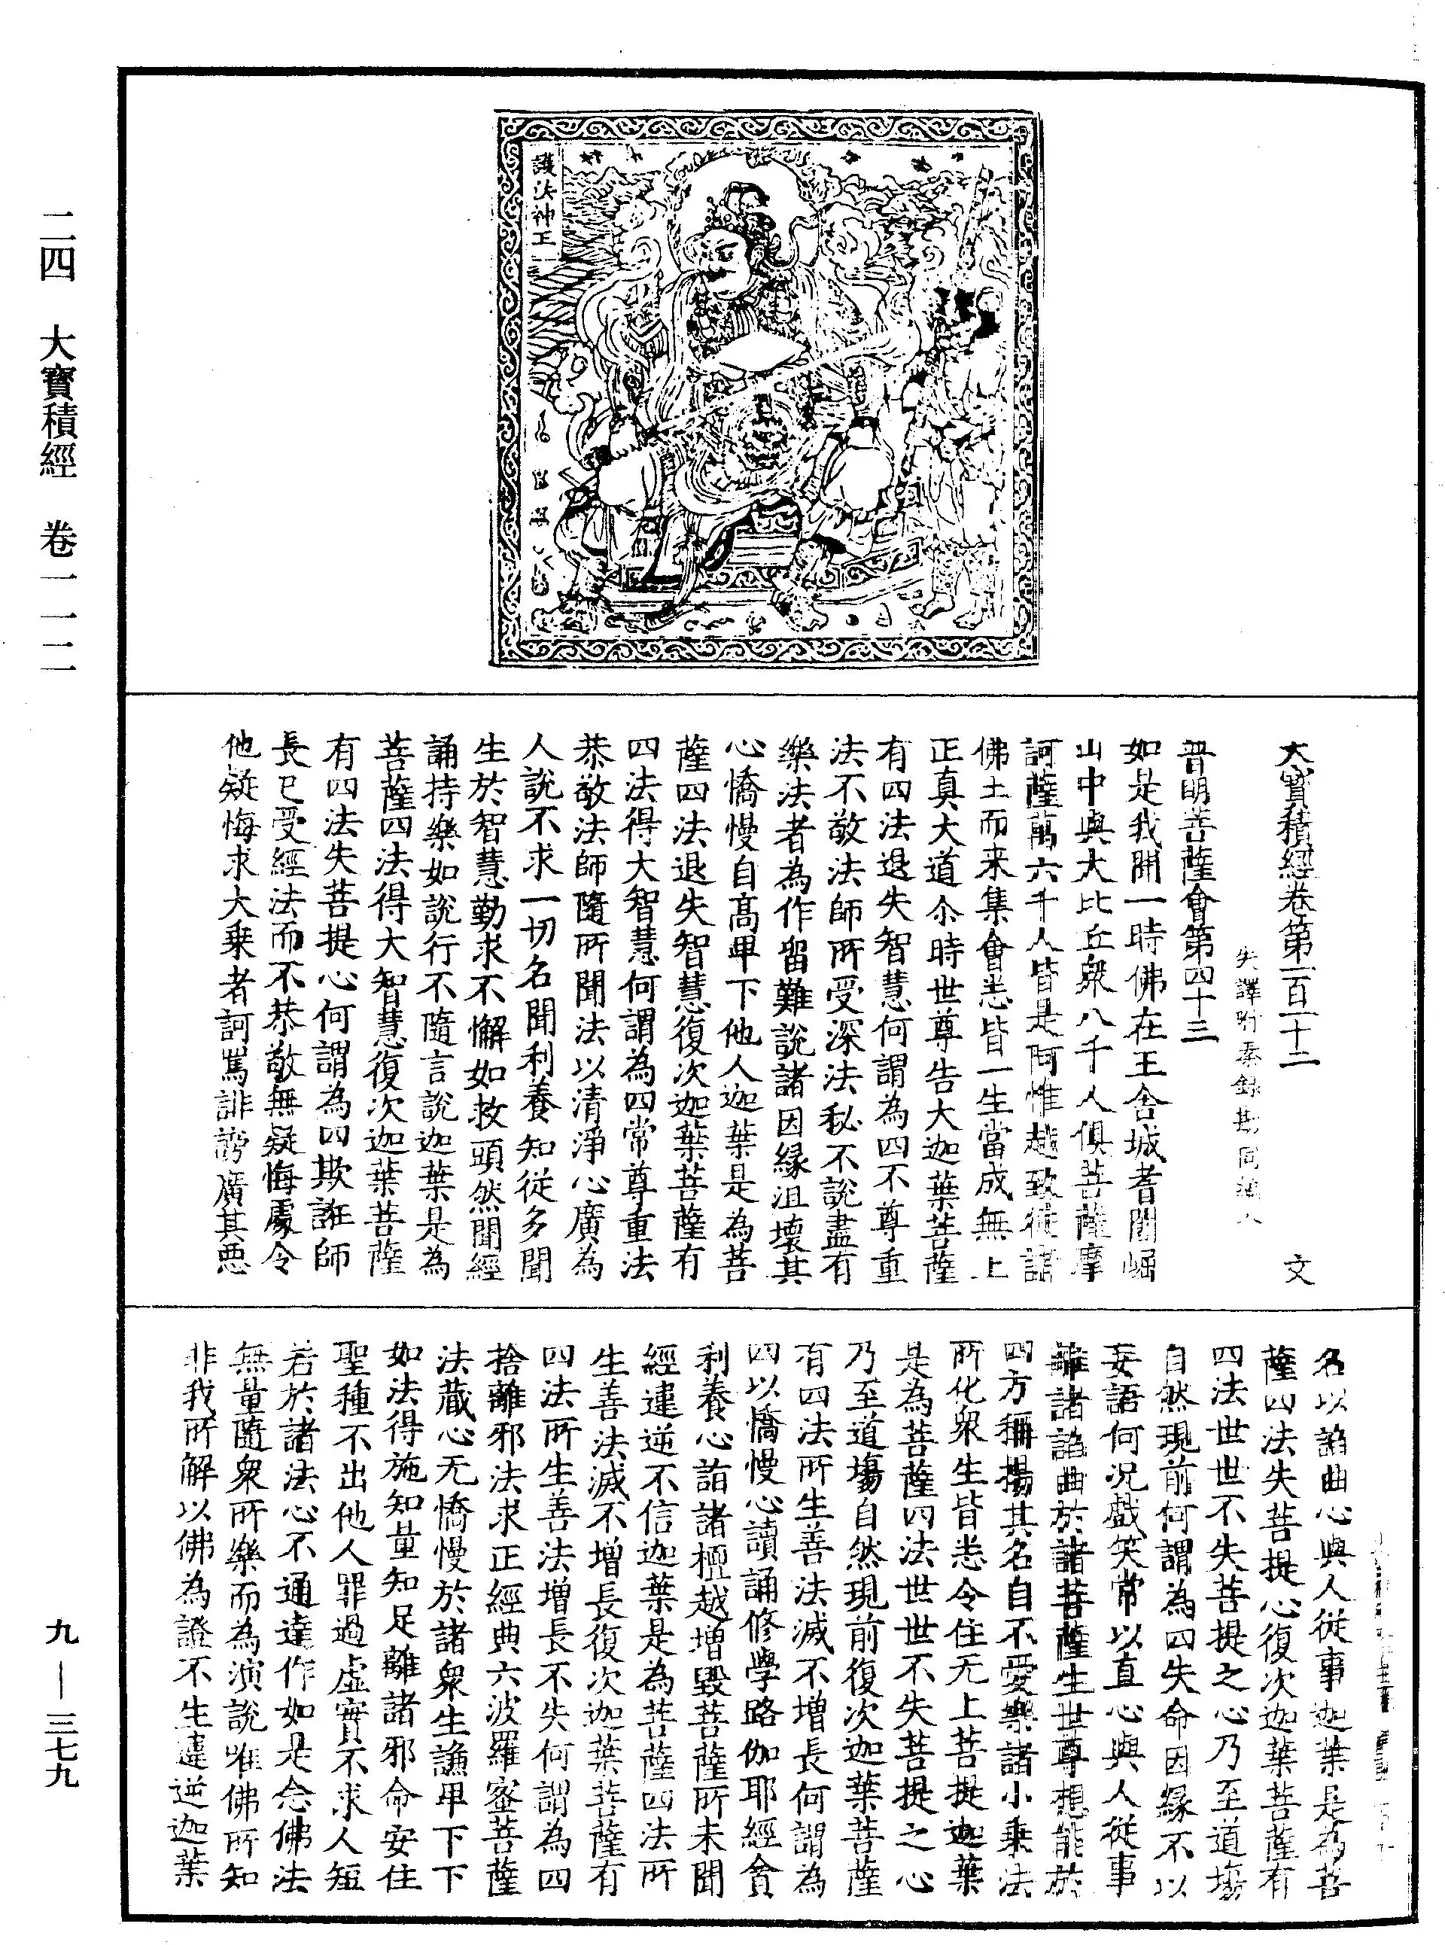 二四 大寶積經 卷一一二
九—三七九
護法神王
大寶積經卷第一百一十二 文
失譯附秦錄勘同編入
普明菩薩會第四十三
如是我聞一時佛在王舍城耆闍崛
山中與大比丘衆八千人俱菩薩摩
訶薩萬六千人皆是阿惟越致從諸
佛土而来集會悉皆一生當成無上
正真大道尒時世尊告大迦葉菩薩
有四法退失智慧何謂為四不尊重
法不敬法師所受深法秘不說盡有
樂法者為作留難說諸因緣沮壞其
心憍慢自高卑下他人迦葉是為菩
薩四法退失智慧復次迦葉菩薩有
四法得大智慧何謂為四常尊重法
恭敬法師隨所聞法以清淨心廣為
人說不求一切名聞利養知從多聞
生於智慧勤求不懈如救頭然聞經
誦持樂如說行不隨言說迦葉是為
菩薩四法得大智慧復次迦葉菩薩
有四法失菩提心何謂為四欺誑師
長已受經法而不恭敬無疑悔處令
他疑悔求大乗者訶罵誹謗廣其惡
名以諂曲心與人従事迦葉是為菩
薩四法失菩提心復次迦葉菩薩有
四法世世不失菩提之心乃至道塲
自然現前何謂為四失命因緣不以
妄語何况戲笑常以直心與人従事
離諸諂曲於諸菩薩生世尊想能於
四方稱揚其名自不愛樂諸小乗法
所化衆生皆悉令住无上菩提迦葉
是為菩薩四法世世不失菩提之心
乃至道塲自然現前復次迦葉菩薩
有四法所生善法滅不增長何謂為
四以憍慢心讀誦修學路伽耶經貪
利養心詣諸檀越增毀菩薩所未聞
經違逆不信迦葉是為菩薩四法所
生善法滅不增長復次迦葉菩薩有
四法所生善法增長不失何謂為四
捨離邪法求正經典六波羅蜜菩薩
法藏心无憍慢於諸衆生謙卑下下
如法得施知量知足離諸邪命安住
聖種不出他人罪過虛實不求人短
若於諸法心不通達作如是念佛法
無量隨衆所樂而為演說唯佛所知
非我所解以佛為證不生違逆迦葉